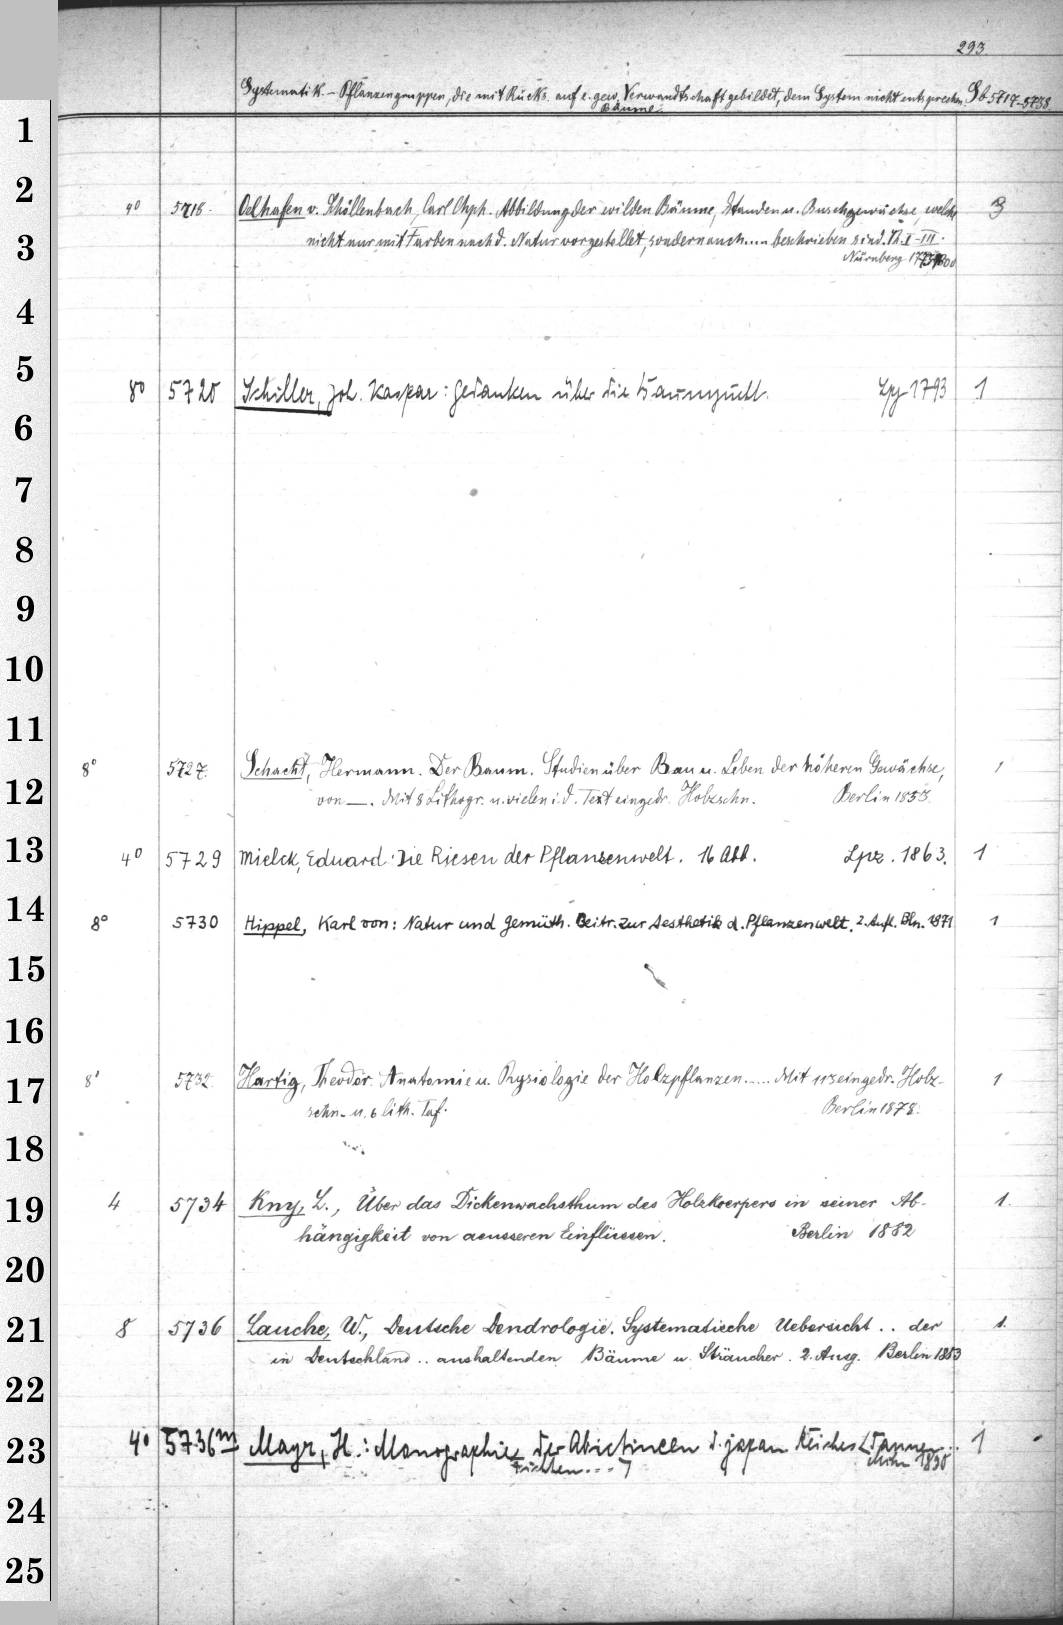 293
Systematik. - Pflanzengruppen, die mit Rücks. auf e. gew. Verwandtschaft gebildet, dem System nicht entsprechen. Sb 5717-5738.
Bäume.
1
2
4° 5718. Oelhafen v. Schöllenbach, Carl Chph. Abbildung der wilden Bäume, Stauden u. Buschgewächse, welche 3
3
nicht nur mit Farben nach d. Natur vorgestellet, sondern auch .... beschrieben sind. Th. I-III.
Nürnberg
4
5
8° 5720 Schiller, Joh. Kaspar: Gedanken über die Baumzucht. Lpz 1793 1
6
7
8
9
10
11
8° 5727. Schacht, Hermann. Der Baum. Studien über Bau u. Leben der höheren Gewächse, 1
12
von —. Mit 8 Lithogr. u. vielen i. d. Text eingedr. Holzschn. Berlin 1853.
13
4° 5729 Mielck, Eduard: Die Riesen der Pflanzenwelt. 16 Abb. Lpz. 1863. 1
14
8° 5730 Hippel, Karl von: Natur und Gemüth. Beitr. zur Aesthetik d. Pflanzenwelt. 2. Aufl. Bln. 1871 1
15
16
17
8° 5732. Hartig, Theodor. Anatomie u. Physiologie der Holzpflanzen ..... Mit 113 eingedr. Holz- 1
schn. u. 6 lith. Taf. Berlin 1878.
18
19
4 5734 Kny, L., Über das Dickenwachsthum des Holzkoerpers in seiner Ab- 1.
hängigkeit von aeusseren Einflüssen. Berlin 1882
20
21
8 5736 Lauche, W., Deutsche Dendrologie. Systematische Uebersicht .. der 1.
in Deutschland .. aushaltenden Bäume u. Sträucher. 2. Ausg. Berlin 1883
22
23
4° 5736m Mayr, H.: Monographie der Abietineen d. japan Reiches <Tannen .. 1
Fichten...> Mchn 1890
24
25